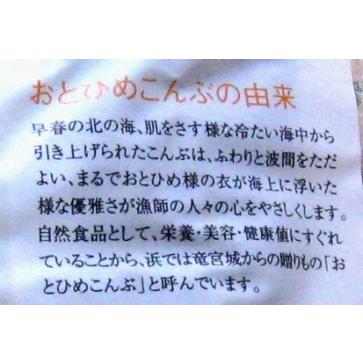 おとひめこんぶの由来
早春の北の海、肌をさす様な冷たい海中から
引き上げられたこんぶは、ふわりと波間をただ
よい、まるでおとひめ様の衣が海上に浮いた
様な優雅さが漁師の人々の心をやさしくします。
自然食品として、栄養・美容・健康値にすぐれ
ていることから、浜では竜宮城からの贈りもの「お
とひめこんぶ」と呼んでいます。